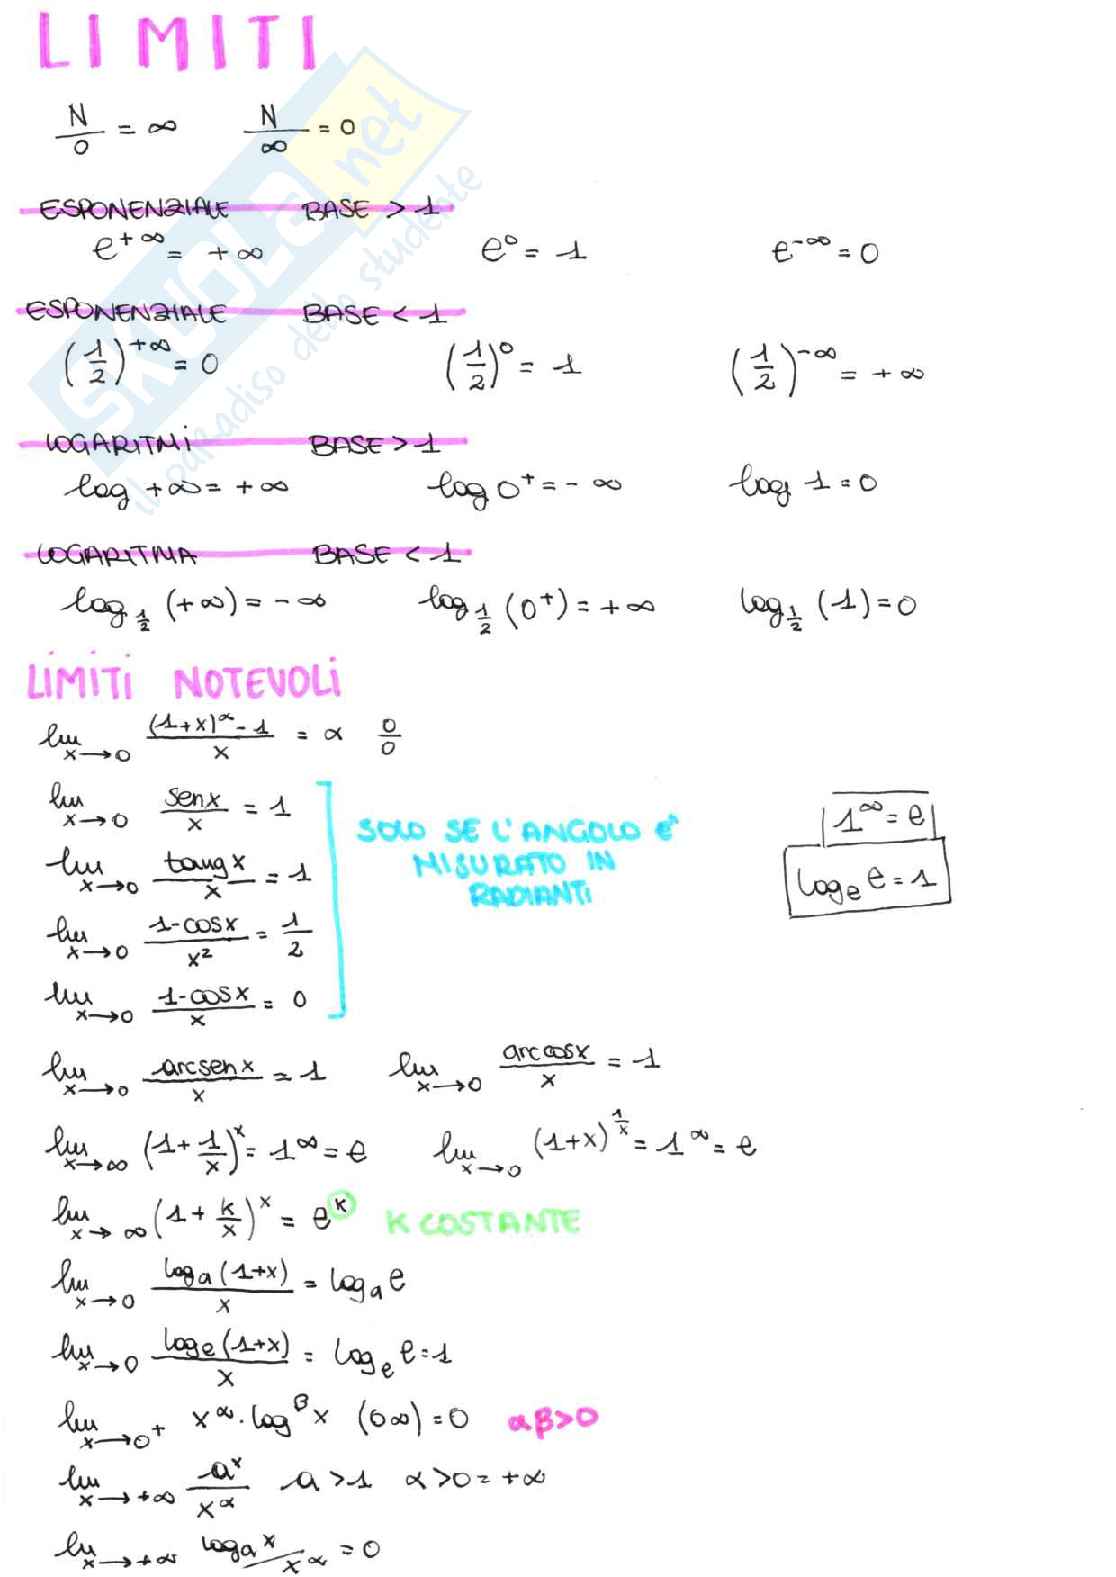 LIMITI
N/0 = ∞ N/∞ = 0
ESPONENZIALE BASE > 1
e^+∞ = +∞ e^0 = 1 e^-∞ = 0
ESPONENZIALE BASE < 1
(1/2)^+∞ = 0 (1/2)^0 = 1 (1/2)^-∞ = +∞
LOGARITMI BASE > 1
log +∞ = +∞ log 0^+ = -∞ log 1 = 0
LOGARITMA BASE < 1
log_1/2 (+∞) = -∞ log_1/2 (0^+) = +∞ log_1/2 (1) = 0
LIMITI NOTEVOLI
lim x→0 ((1+x)^α - 1)/x = α 0/0
lim x→0 senx/x = 1
lim x→0 tangx/x = 1
lim x→0 (1-cosx)/x² = 1/2
lim x→0 (1-cosx)/x = 0
SOLO SE L'ANGOLO E'
MISURATO IN
RADIANTI
1^∞ = e
log_e e = 1
lim x→0 arcsenx/x = 1 lim x→0 arccosx/x = 1
lim x→∞ (1+1/x)^x = 1^∞ = e lim x→0 (1+x)^1/x = 1^∞ = e
lim x→∞ (1+k/x)^x = e^k K COSTANTE
lim x→0 log_a(1+x)/x = log_a e
lim x→0 log_e(1+x)/x = log_e e = 1
lim x→0^+ x^α · log^β x (0∞) = 0 αβ>0
lim x→+∞ a^x/x^α a>1 α>0 = +∞
lim x→+∞ log_a x/x^α = 0
SKUOLA.net
il paradiso dello studente